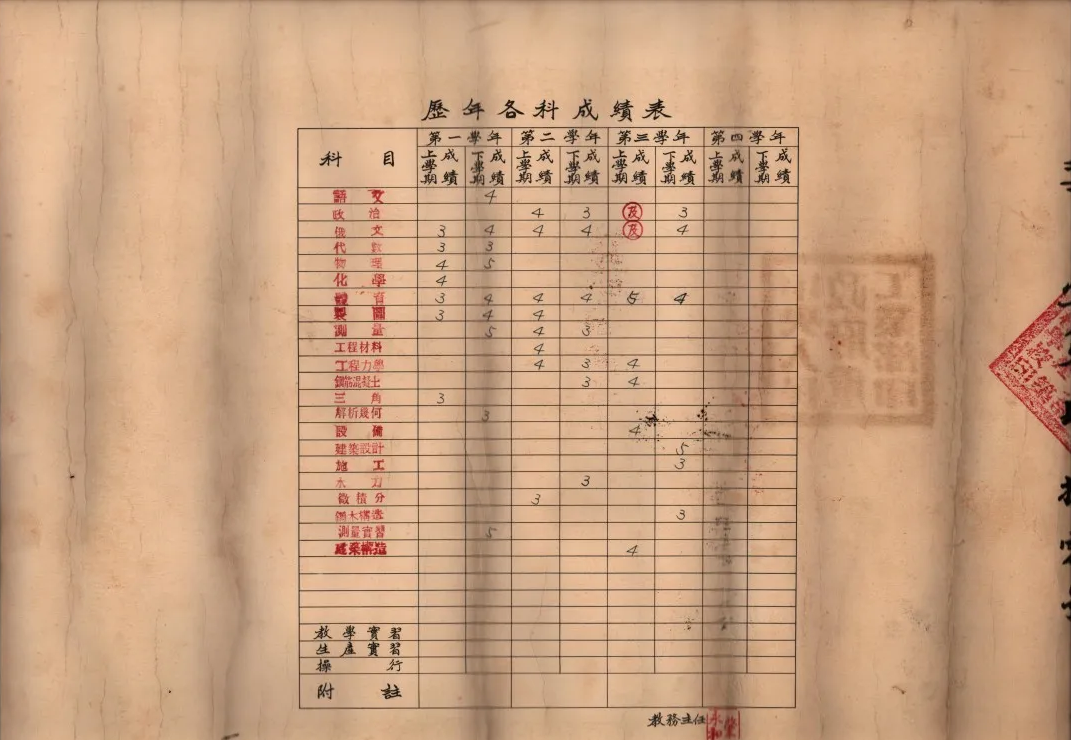 歷年各科成績表
科目 第一學年 第二學年 第三學年 第四學年
上學期成績 下學期成績 上學期成績 下學期成績 上學期成績 下學期成績 上學期成績 下學期成績
語文 4
政治 4 3 及 3
俄文 3 4 4 4 及 4
代數 3 3
物理 4 5
化學 4
體育 3 4 4 4 5 4
製圖 3 4 4
測量 5 4 3
工程材料 4
工程力學 4 3 4
鋼筋混凝土 3 4
三角 3
解析幾何 3
設備 4
建築設計 5
施工 3
水力 3
微積分 3
鋼木構造 3
測量實習 5
建築構造 4
教學實習
生產實習
操行
附註
教務主任